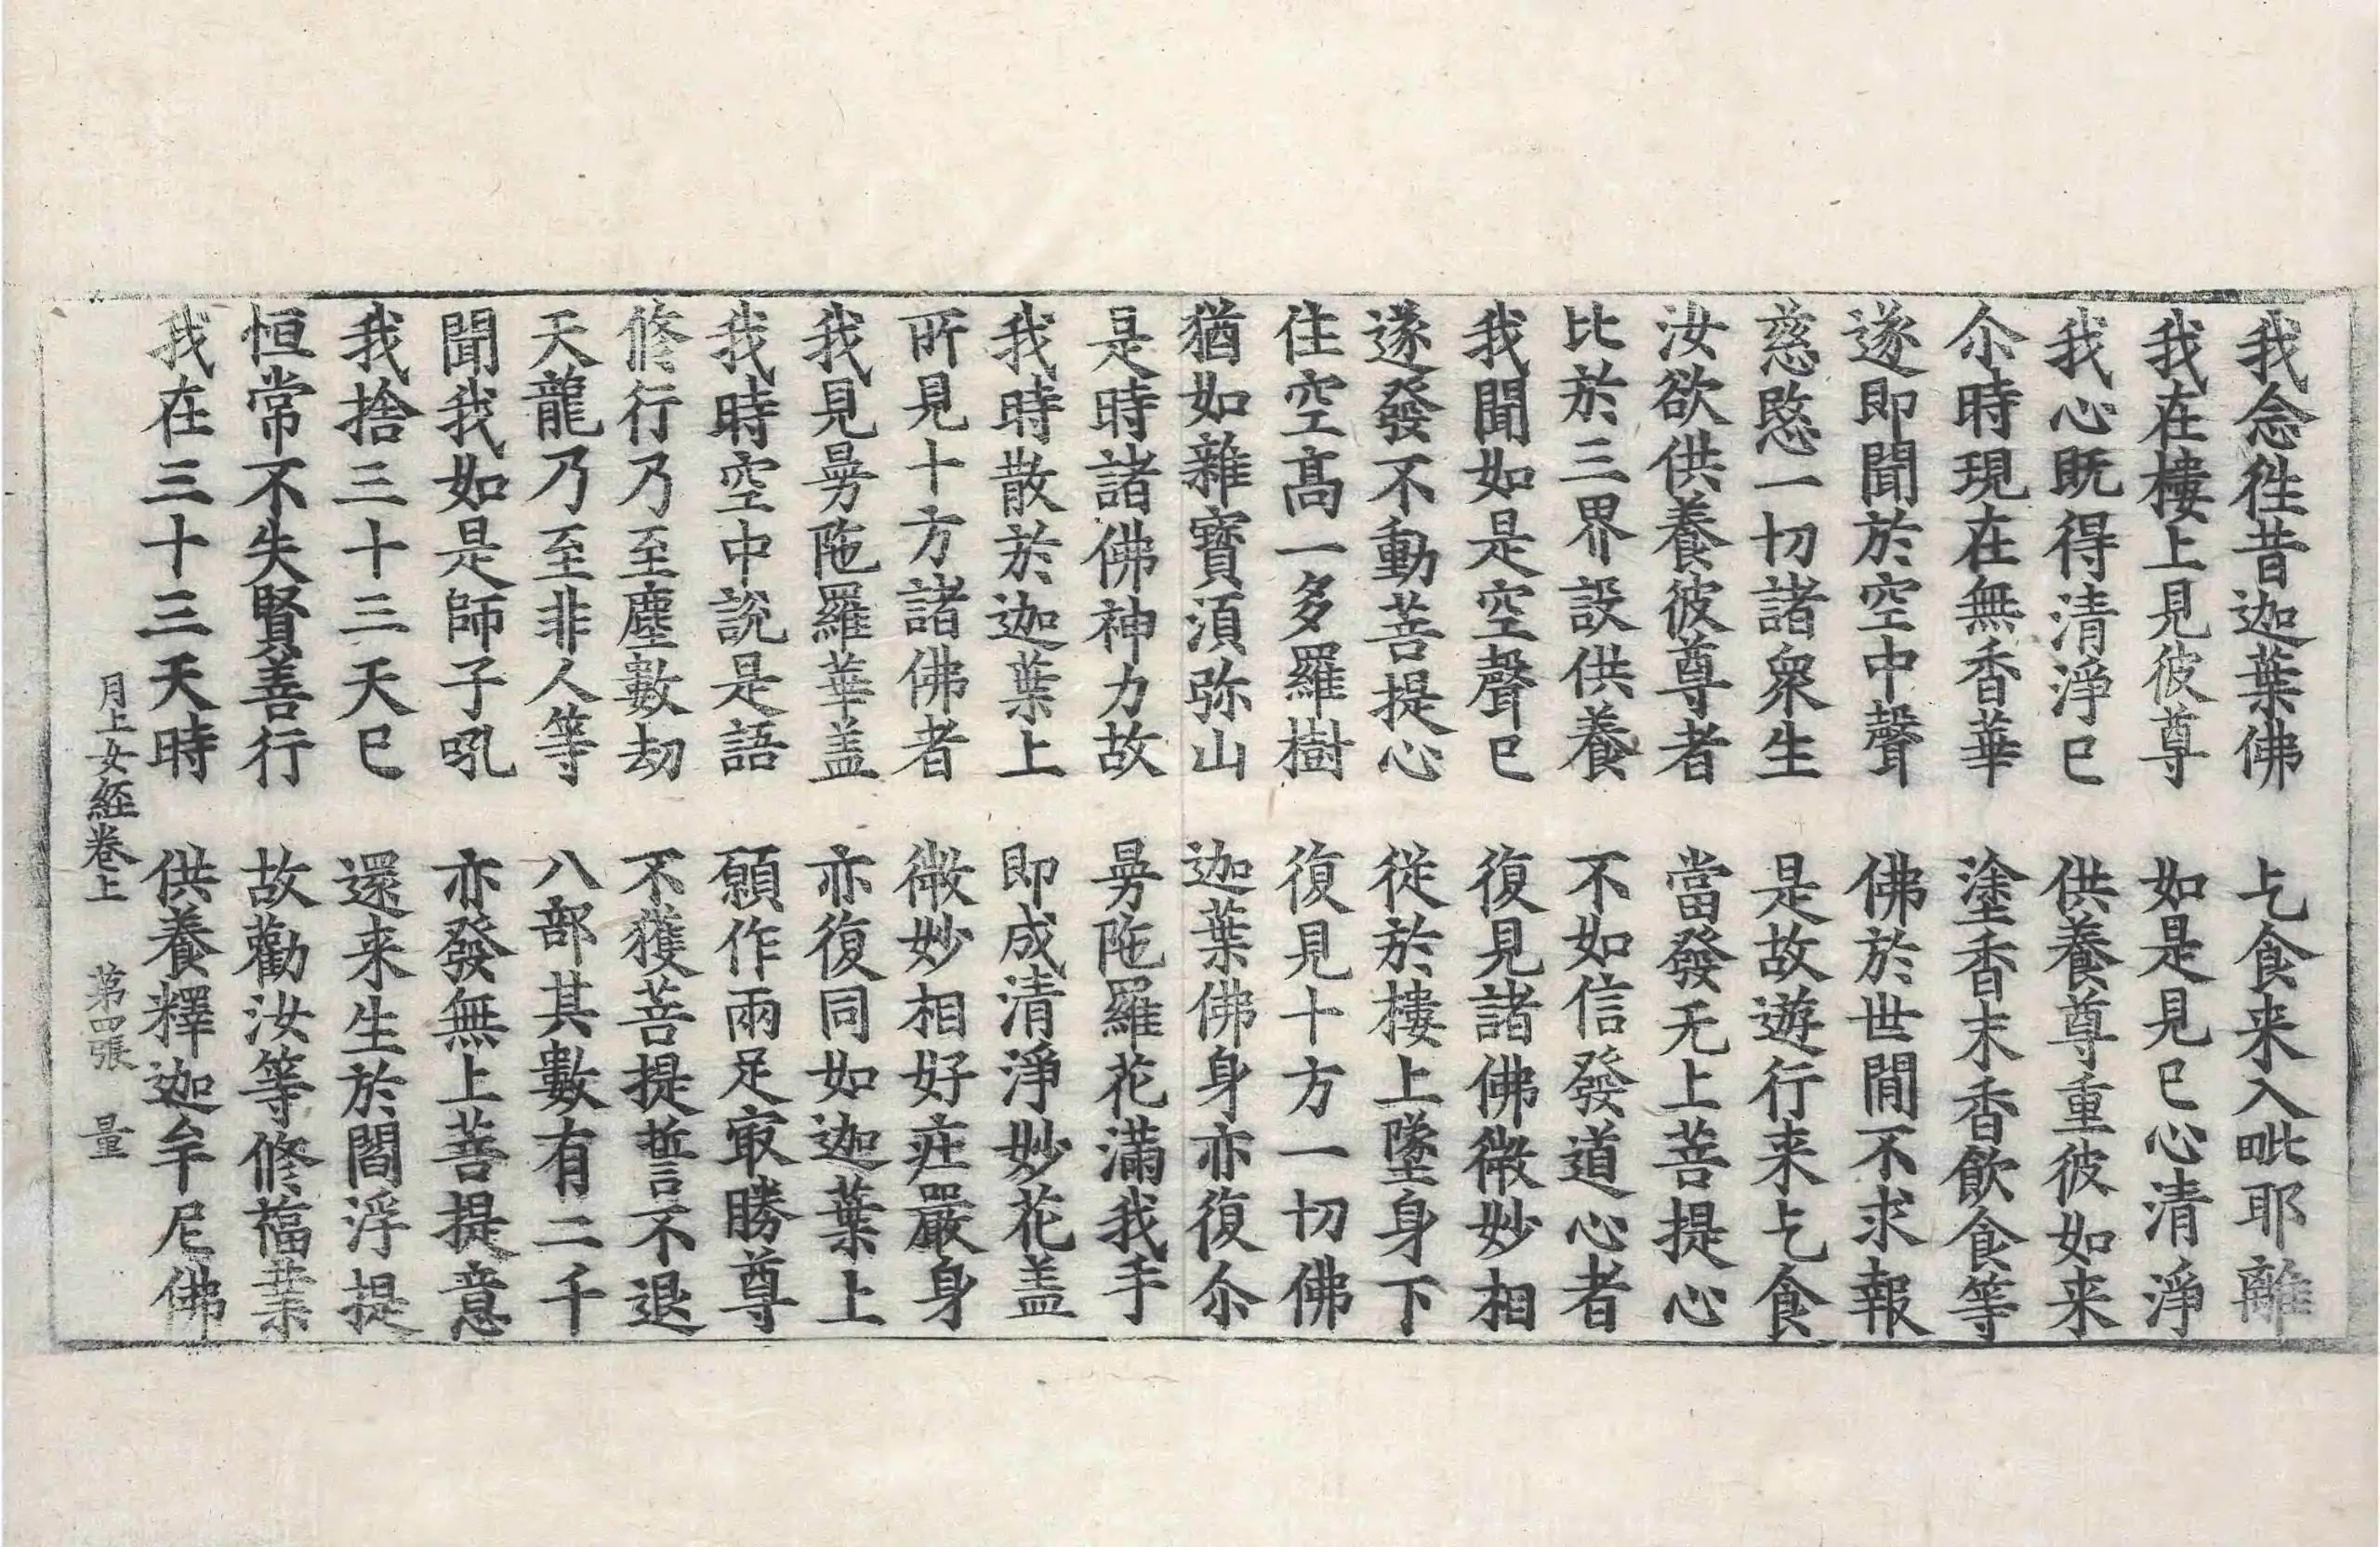 我念徃昔迦葉佛　乞食来入毗耶離
我在樓上見彼尊　如是見已心清淨
我心既得清淨已　供養尊重彼如来
尒時現在無香華　塗香末香飲食等
遂即聞於空中聲　佛於世閒不求報
慈愍一切諸衆生　是故遊行来乞食
汝欲供養彼尊者　當發无上菩提心
比於三界設供養　不如信發道心者
我聞如是空聲已　復見諸佛微妙相
遂發不動菩提心　從於樓上墜身下
住空髙一多羅樹　復見十方一切佛
猶如雜寶湏弥山　迦葉佛身亦復尒
是時諸佛神力故　曼陁羅花滿我手
我時散於迦葉上　即成清淨妙花盖
所見十方諸佛者　微妙相好莊嚴身
我見曼陁羅華盖　亦復同如迦葉上
我時空中說是語　願作兩足㝡勝尊
修行乃至塵數劫　不獲菩提誓不退
天龍乃至非人等　八部其數有二千
聞我如是師子吼　亦發無上菩提意
我捨三十三天已　還来生於閻浮提
恒常不失賢善行　故勸汝等修福業
我在三十三天時　供養釋迦牟尼佛
月上女經卷上　第四張　量